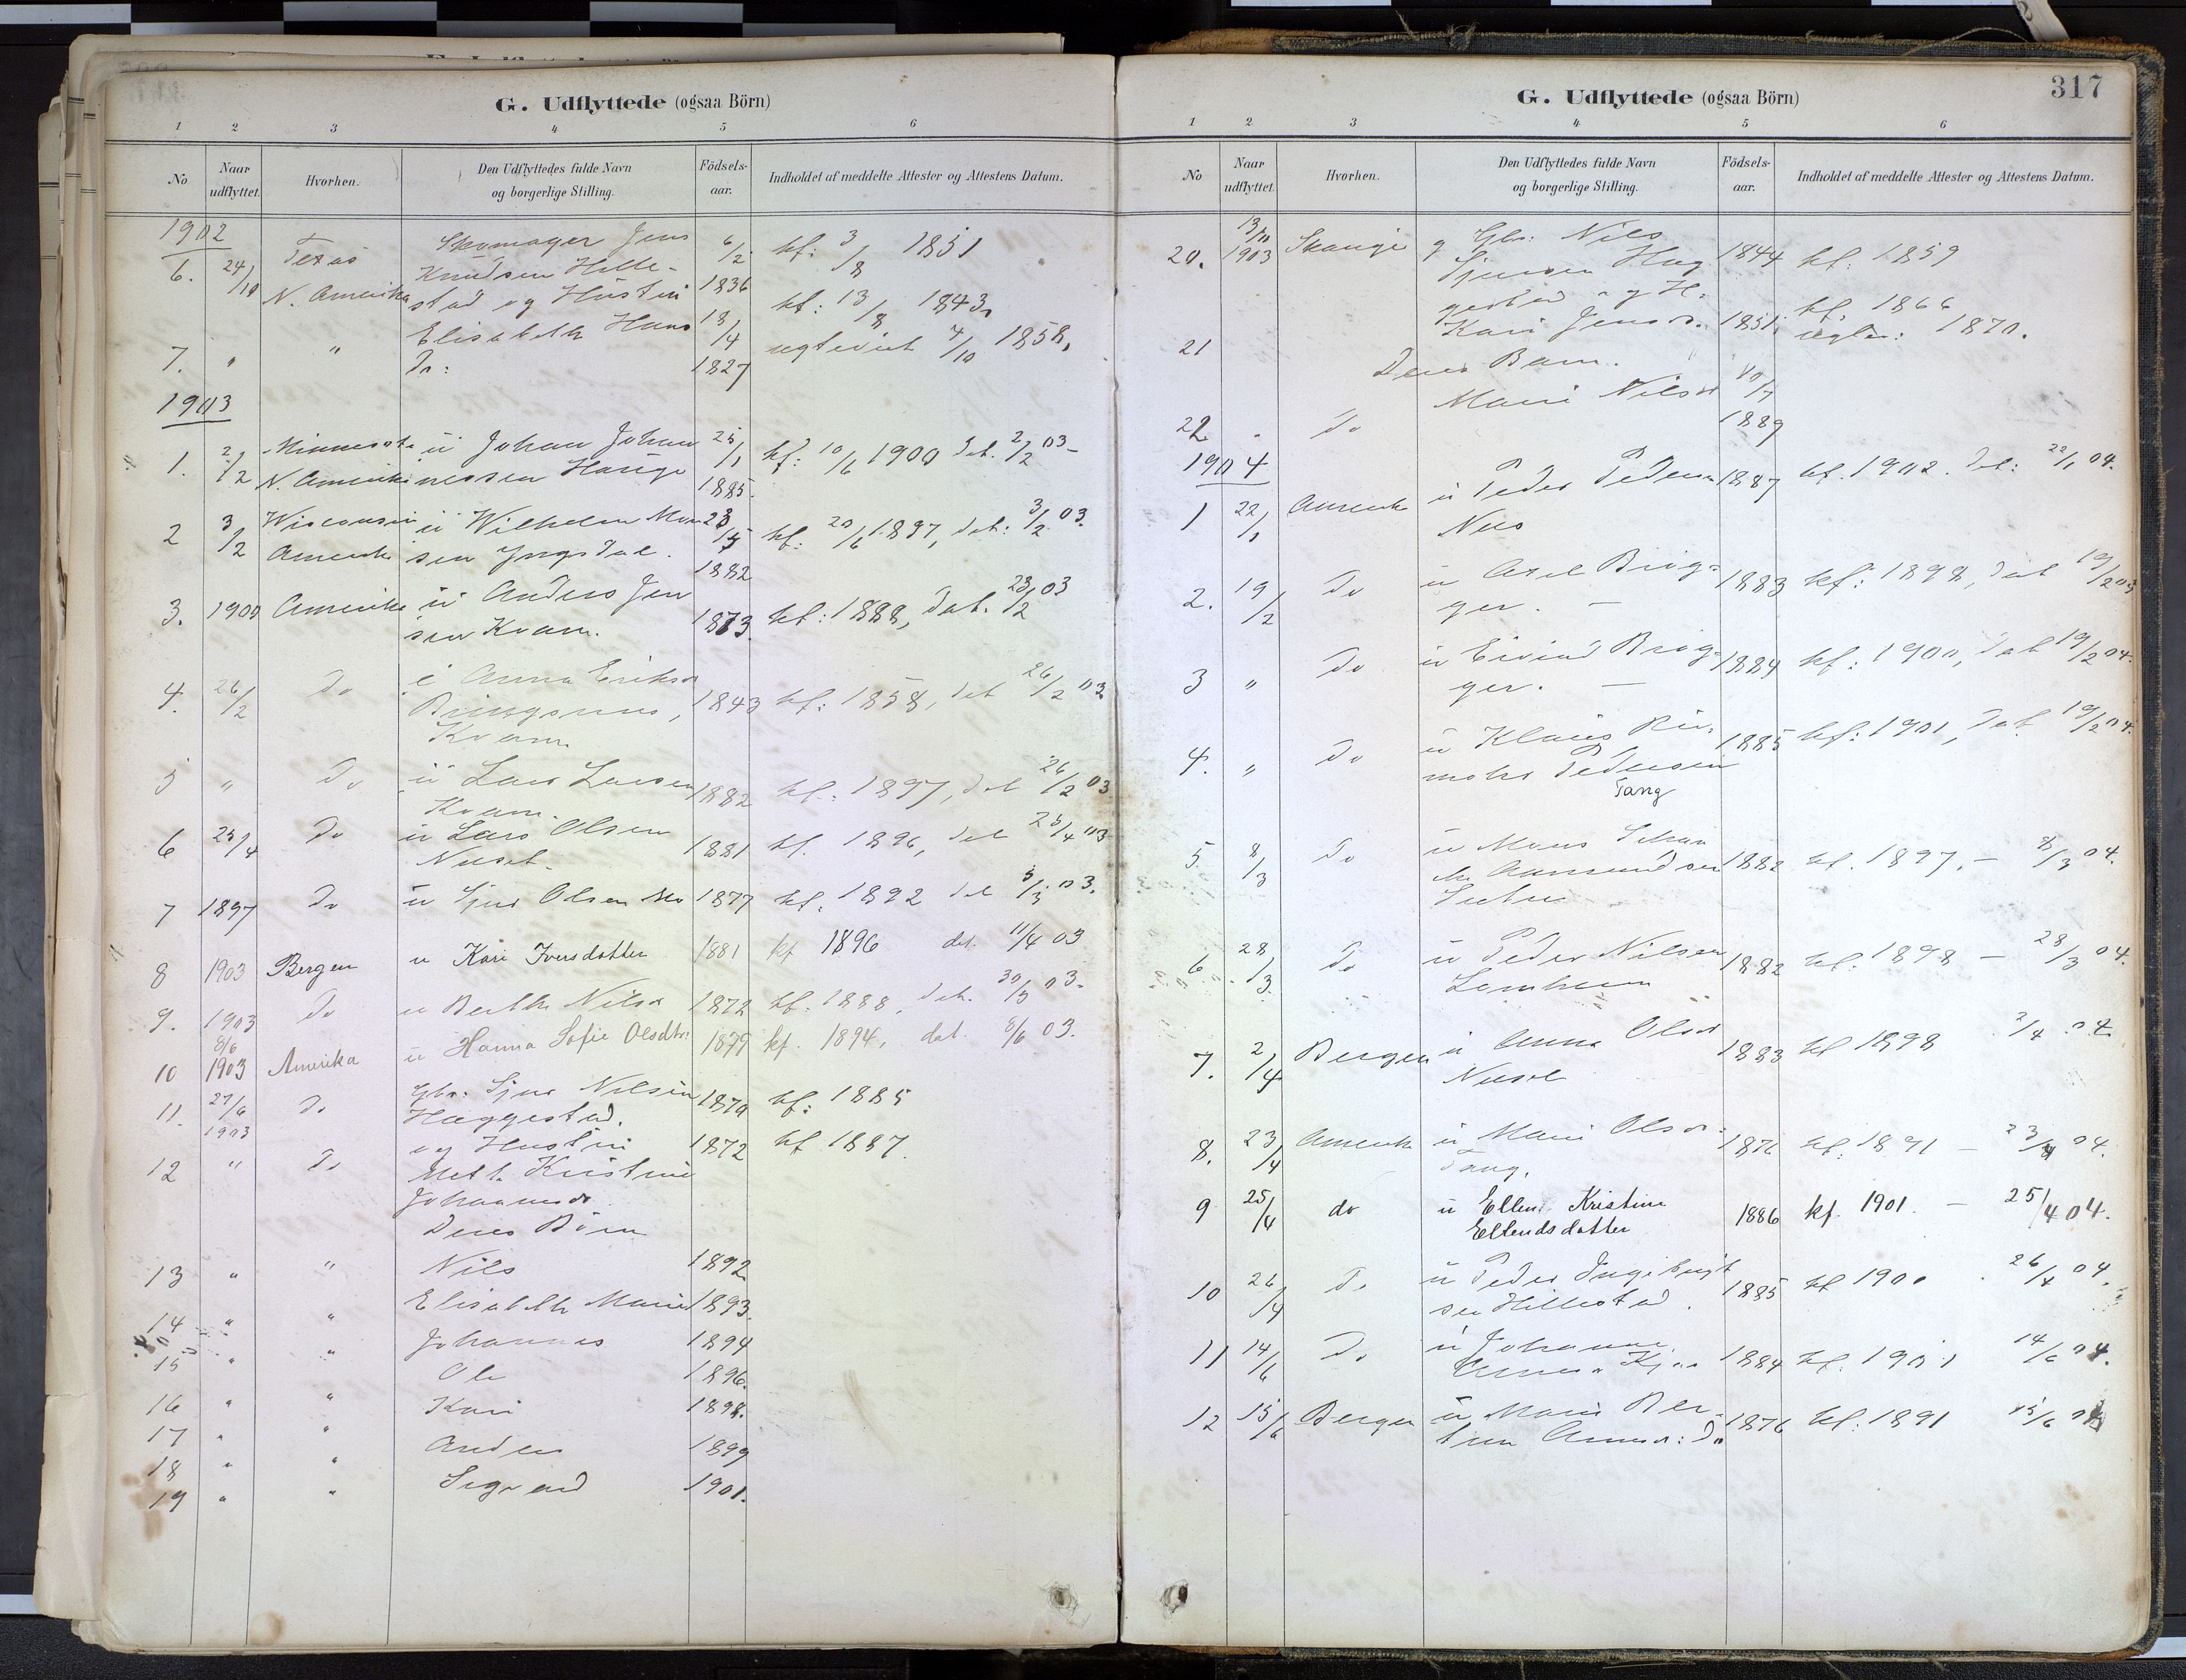 G. Udflyttede (ogsaa Börn)
1 2 3 4 5 6
No
Naar udflyttet.
Hvorhen.
Den Udflyttedes fulde Navn og borgerlige Stilling.
Födsels-aar.
Indholdet af meddelte Attester og Attestens Datum.
1902
6. 24/10 Texas Skomager Jens 6/2 kf: 3/8 1851
N. Amerika Knudsen Hille- 1836
stad og Hustru kf: 13/8 1843.
Elisabeth Hans 18/4
7. " " Dr: 1827 egteviet 4/10 1858.
1903
1. 2/2 Minnesota u Johan Johan 25/1 kf: 10/6 1900 dat. 2/2 03
N. Amerika nessen Hauge 1885.
2 3/2 Wisconsin u Wilhelm Mon 23/5 kf: 20/6 1897, dat: 3/2 03.
Amerika sen Yngsdal. 1882
3. 1900 Amerika u Anders Jen
sen Kvam. 1873 kf: 1888, dat. 23/2 03
4. 26/2 Do Anna Eriksd
1843 kf: 1858, dat 26/2 03
Kvam
5 " Do u Lars Larsen 1882 kf: 1897, dat 26/2 03
Kvam.
6 25/4 Do u Lars Olsen 1881 kf. 1896, dat 25/4 03
7 1897 Do u Sjur Olsen 1877 kf. 1892 dat 5/3 03.
8 1903 Bergen u Kari Iversdatter 1881 kf 1896 dat. 11/4 03
9. 1903 Do u Berthe Nilsd 1872 kf. 1888, dat. 30/3 03.
10 8/6 1903 Amerika u Hanna Sofie Olsdtr. 1879 kf. 1894, dat. 8/6 03.
11. 27/6 1903 Do Gbr. Sjur Nilsen 1870 kf: 1885
Haggestad.
12 " Do og Hustru 1872 kf 1887.
Mette Kristine
Johannesd.
Deres Börn
13 " " Nils 1892
14 " " Elisabeth Marie 1893.
15 " " Johannes 1894
16 " " Ole 1896.
17 " " Kari 1898.
18 " " Anders 1899
19 " " Sigvard 1901.
317
G. Udflyttede (ogsaa Börn)
1 2 3 4 5 6
No
Naar udflyttet.
Hvorhen.
Den Udflyttedes fulde Navn og borgerlige Stilling.
Födsels-aar.
Indholdet af meddelte Attester og Attestens Datum.
20. 13/10 1903 Skauge Gbr: Nils 1844 kf: 1859
Sjursen Hag
gestad og H.
21 Kari Jensd. 1851 kf. 1866
egtev: 1870.
Deres Barn.
22 " Do Mari Nilsd 10/7 1889
1904
1 22/1 Amerika u Peder Pedersen 1887 kf. 1902. dat: 22/1 04.
2. 19/2 Do u Axel Brig- 1883 kf: 1898, dat 19/2 03
ger. —
3 " Do u Eivind Brig- 1884 kf: 1900, dat 19/2 04.
ger. —
4. " Do u Klaus 1885 kf: 1901, dat. 19/2 04.
Pedersen
Tang
5. 8/3 Do u Mons Johan
Aamundsen 1882 kf. 1897. — 8/3 04.
6 28/3 Do u Peder Nilsen 1882 kf. 1898 — 28/3 04.
7. 2/4 Bergen u Anna Olsd 1883 kf 1898 2/4 04
8. 23/4 Amerika u Mari Olsd. 1876 kf. 1891 — 23/4 04.
Tang.
9 25/4 do u Ellen Kristine
Ellendsdatter 1886 kf. 1901. — 25/4 04.
10 26/4 Do u Peder Ingebrigt
sen Hillestad. 1885 kf 1900 . 26/4 04.
11 14/6 Do u Johanne 1884 kf. 1901 14/6 04.
12 15/6 Bergen u Mari 1876 kf: 1891 15/6 04